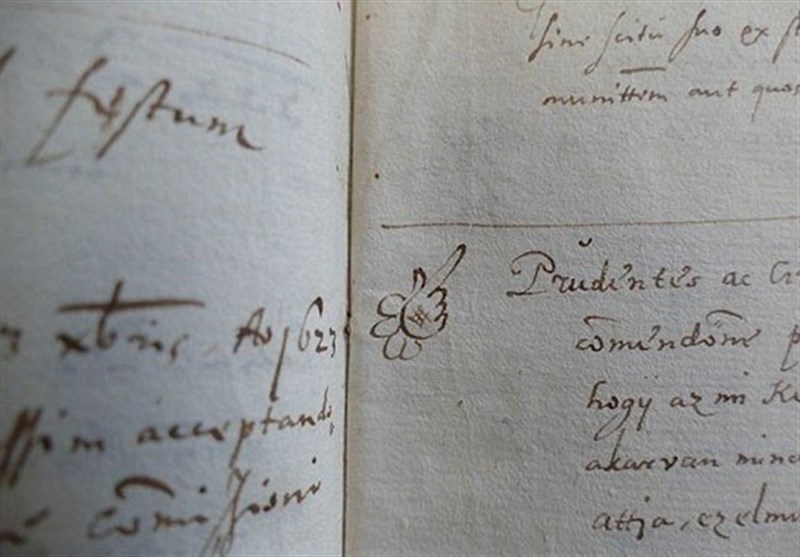 festum
xbris. Ao 1623
acceptand
comissioni
sine scitu suo ex
munittem aut quos
Prŭdentes ac
cōmendōne
hogÿ az mi
akarvan mind
attja, ezelmu